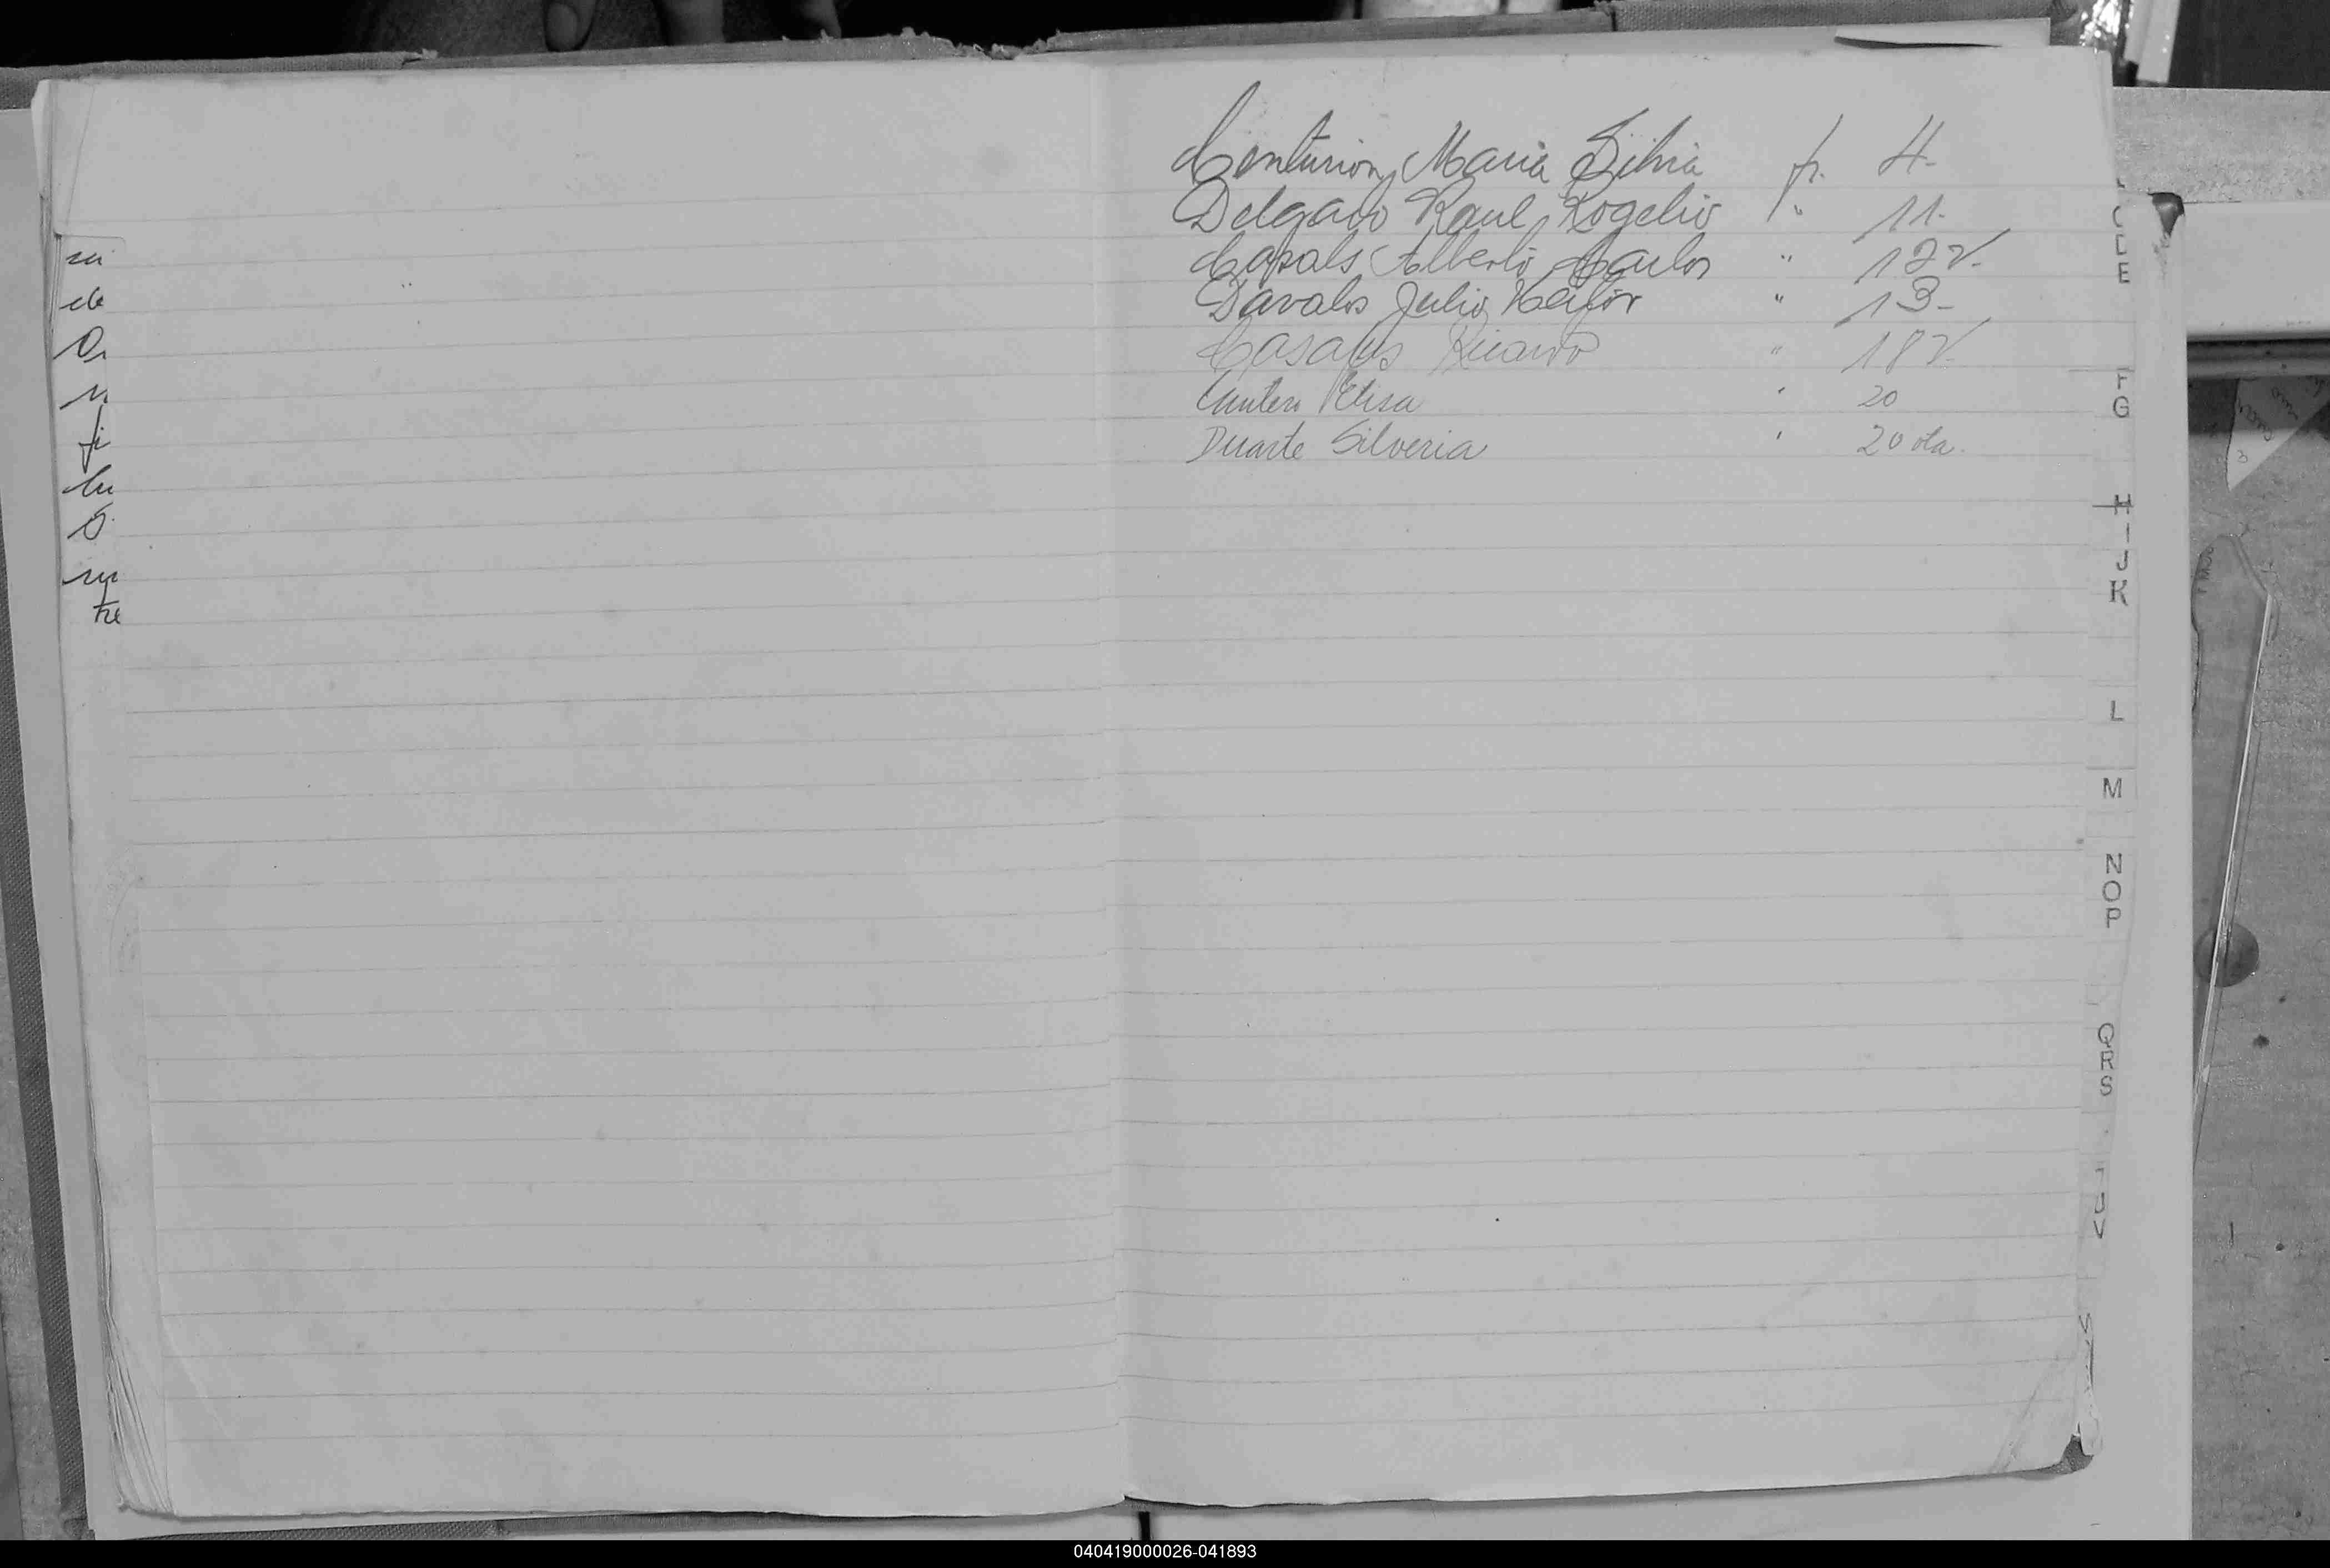 su
de
fi
lu
Centurion, Maria Silvia fs. 4-
Delgado Raul Rogelio " 11-
Casals Alberto Carlos " 12 v.
Davalos Julio Hector " 13-
Casals Ricardo " 18 v.
Cantero Elisa " 20
Duarte Silveria " 20 vta.
C
D
E
F
G
H
I
J
K
L
M
N
O
P
Q
R
S
T
U
V
040419000026-041893